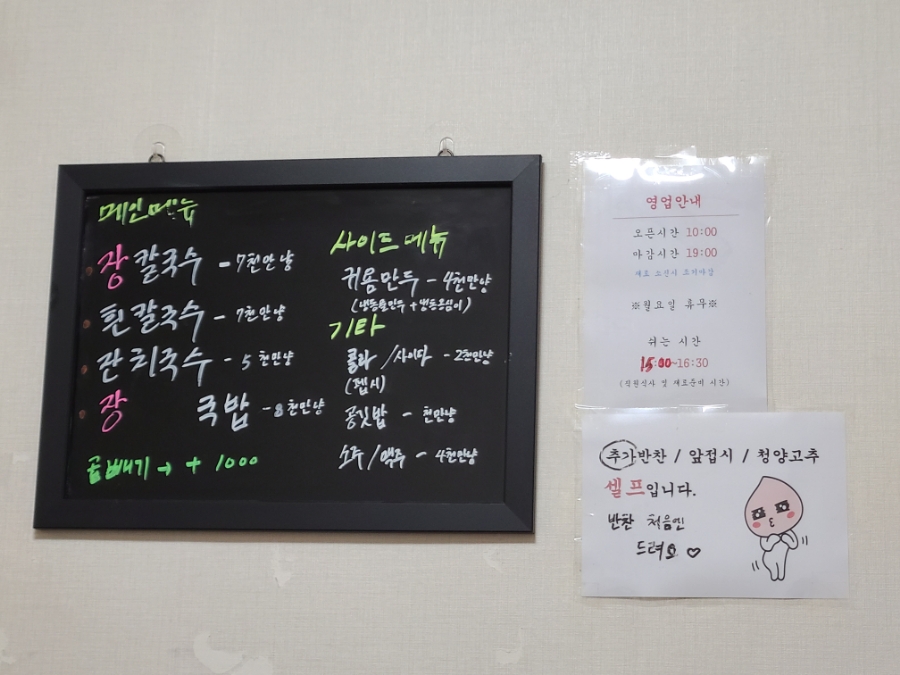 메인메뉴
장 칼국수 - 7천만냥
흰 칼국수 - 7천만냥
잔치국수 - 5천만냥
장 국밥 - 8천만냥
곱빼기 → + 1000
사이드 메뉴
귀용만두 - 4천만냥
기타
콜라 / 사이다 - 2천만냥
(펩시)
공깃밥 - 천만냥
소주 / 맥주 - 4천만냥
영업안내
오픈시간 10:00
마감시간 19:00
재료 소진시 조기마감
※월요일 휴무※
쉬는 시간
15:00~16:30
(직원식사 및 재료준비 시간)
추가반찬 / 앞접시 / 청양고추
셀프입니다.
반찬 처음엔
드려요 ♡